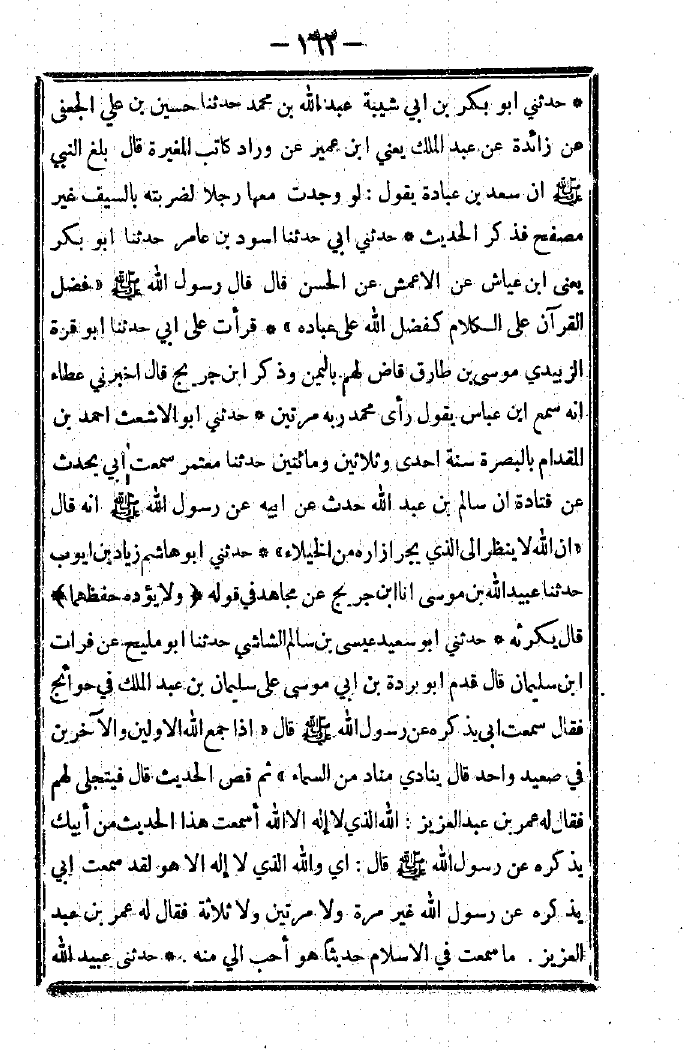 — ١٦٣ —
* حدثني ابو بكر بن ابي شيبة عبد الله بن محمد حدثنا حسين بن علي الجعفي
عن زائدة عن عبد الملك يعني ابن عمير عن وراد كاتب المغيرة قال بلغ النبي
ﷺ ان سعد بن عبادة يقول : لو وجدت معها رجلا لضربته بالسيف غير
مصفح فذكر الحديث * حدثني ابي حدثنا اسود بن عامر حدثنا ابو بكر
يعنى ابن عياش عن الاعمش عن الحسن قال قال رسول الله ﷺ « فضل
القرآن على الكلام كفضل الله على عباده » * قرأت على ابي حدثنا ابو قرة
الزبيدي موسى بن طارق قاض لهم باليمن وذكر ابن جريج قال اخبرني عطاء
انه سمع ابن عباس يقول رأى محمد ربه مرتين * حدثني ابو الاشعث احمد بن
المقدام بالبصرة سنة احدى وثلاثين ومائتين حدثنا معتمر سمعت ابي يحدث
عن قتادة ان سالم بن عبد الله حدث عن ابيه عن رسول الله ﷺ انه قال
« ان الله لا ينظر الى الذي يجر ازاره من الخيلاء » * حدثني ابو هاشم زياد بن ايوب
حدثنا عبيد الله بن موسى انا ابن جريج عن مجاهد في قوله ﴿ ولا يؤده حفظهما ﴾
قال يكرثه * حدثني ابو سعيد عيسى بن سالم الشاشي حدثنا ابو مليح عن فرات
ابن سليمان قال قدم ابو بردة بن ابي موسى على سليمان بن عبد الملك في حوائج
فقال سمعت ابي يذكره عن رسول الله ﷺ قال « اذا جمع الله الاولين والآخرين
في صعيد واحد قال ينادي مناد من السماء » ثم قص الحديث قال فيتجلى لهم
فقال له عمر بن عبد العزيز : الله الذي لا إله الا الله أسمعت هذا الحديث من أبيك
يذكره عن رسول الله ﷺ قال : اي والله الذي لا إله الا هو لقد سمعت ابي
يذكره عن رسول الله غير مرة ولا مرتين ولا ثلاثة فقال له عمر بن عبد
العزيز . ما سمعت في الاسلام حديثاً هو أحب الي منه . * حدثنى عبيد الله